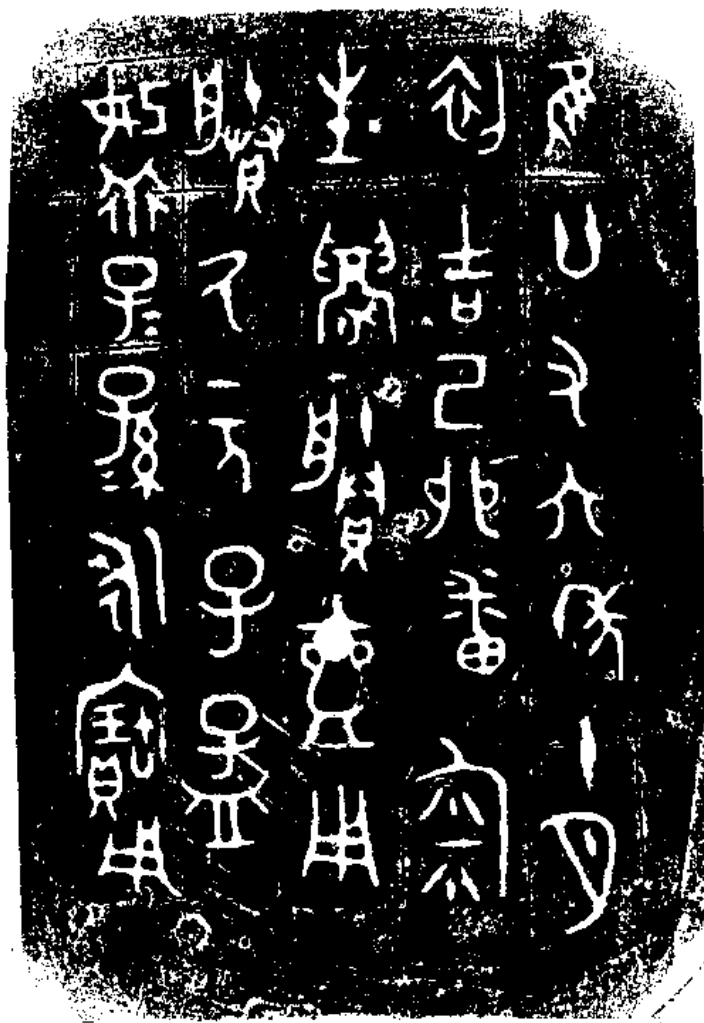 隹廿又六年十月
初吉己卯番匊
生鑄賸壺用
賸厥元子孟
改乖子=孫=永寶用